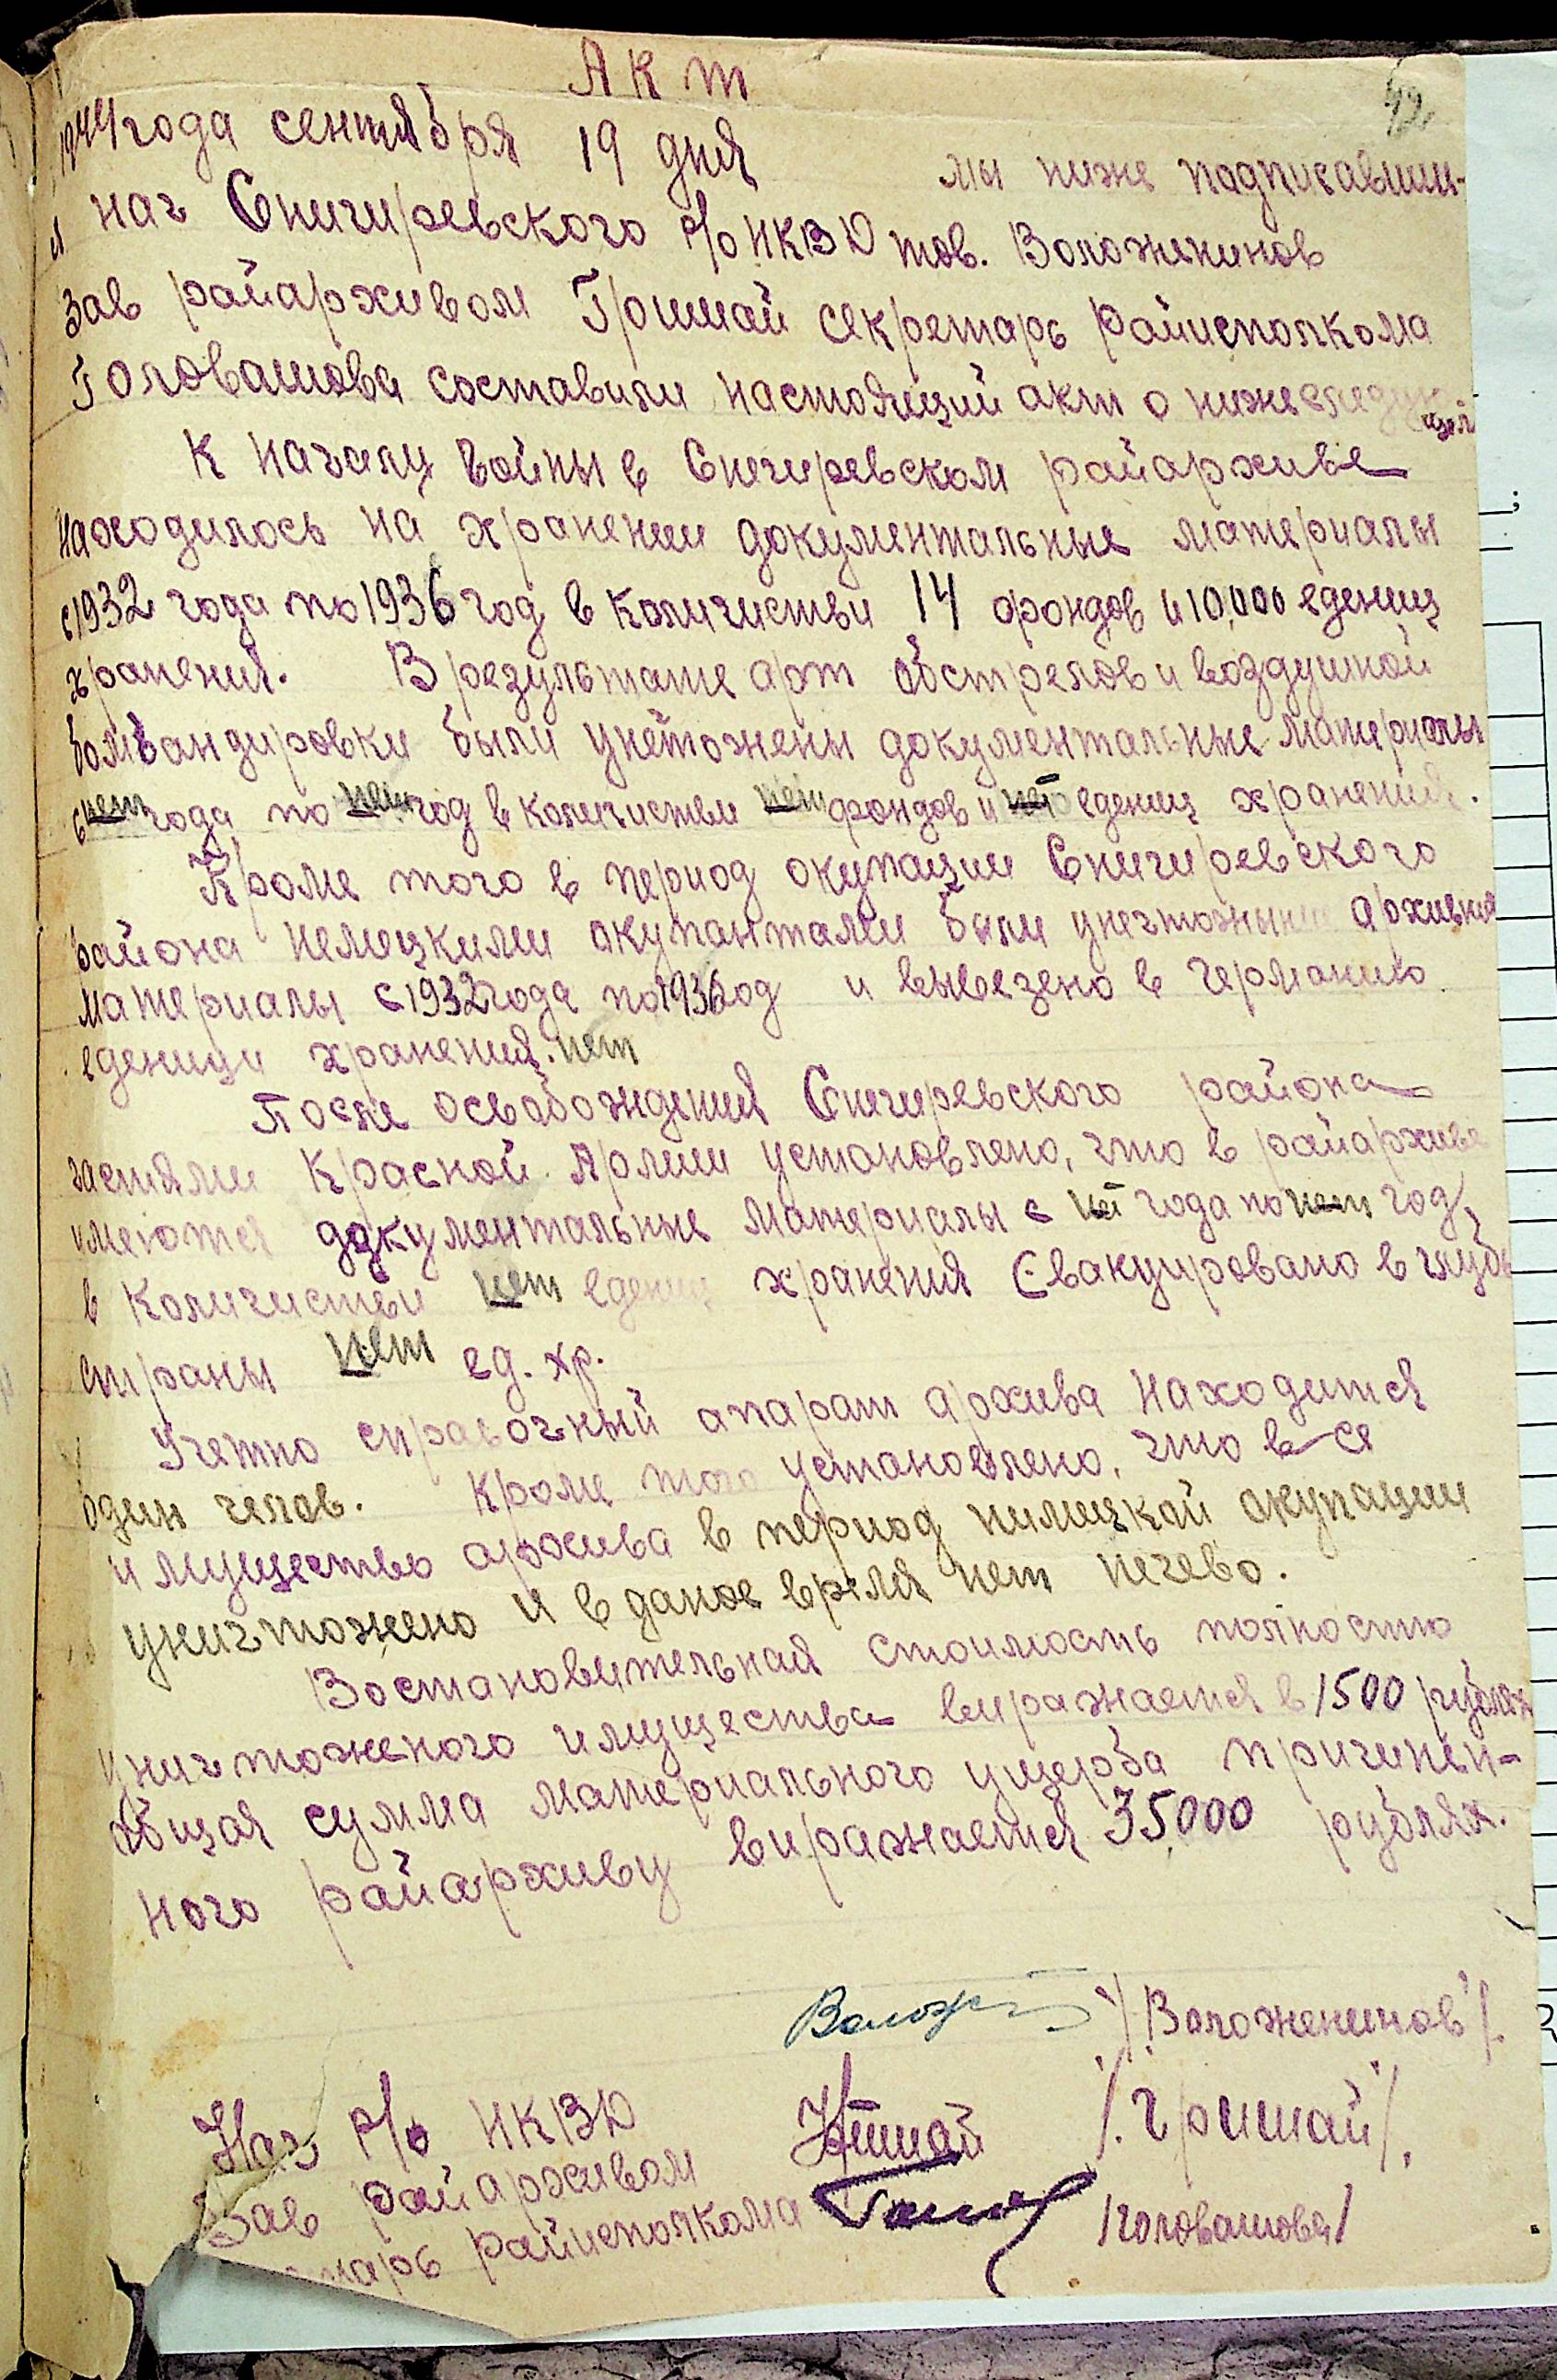 Акт
42
1944 года сентября 19 дня мы ниже падписавшии-
ся нач Снигиревского Р/О НКВД тов. Воложенинов
зав райархивом Гришай секретарь Райисполкома
Головашова составили настоящий акт о нижеследующем
К началу войны в Снигиревском райархиве
находилось на хранении документальные материалы
с 1932 года по 1936 год в количистви 14 фондов и 10,000 едениц
хранения. В результате арт обстрелов и воздушной
бомбандировки были унетожены документальные материалы
с нет года по нет год в количистви нет фондов и нет едениц хранения.
Кроме того в период окупации Снигиревского
района немецкими окупантами были унечтожены архивные
материалы с 1932 года по 1936 год и вывезено в германию
еденици хранения. нет
После освобождения Снигиревского района
частями Красной Армии установлено, что в райархиве
имеются документальные материалы с нет года по нет год,
в количистви нет едениц хранения Евакуировано в глубь
страны нет ед. хр.
Учетно справочный апарат архива находится
один челов. Кроме того установлено, что все
имущество архива в период нимецкой окупации
уничтожено и в даное время нет нечево.
Востановительная стоимость полностю
уничтоженого имущества виражается в 1500 рублях
общая сумма материального ущерба причинен-
ного райархиву виражается 35,000 рублях.
/Воложенинов/.
Нач Р/о НКВД
/.Гришай/.
Зав райархивом
райисполкома /головашова/